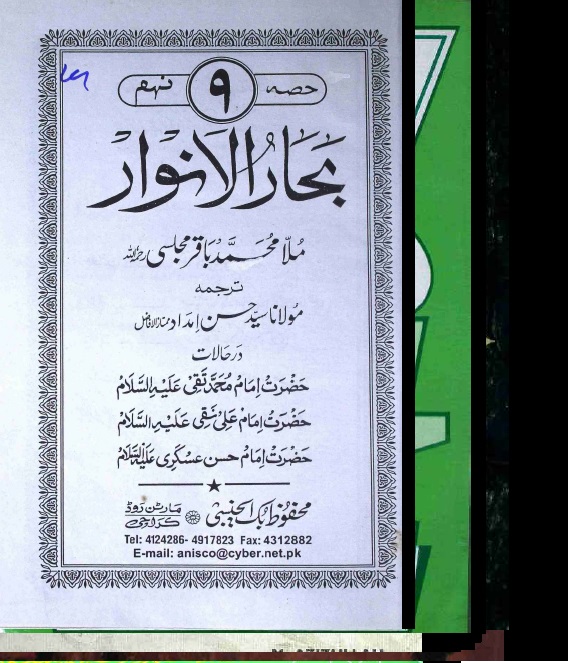 حصہ ۹ نہم
بحارُالانوار
مُلّا محمّد باقر مجلسی رحمۃ اللہ
ترجمہ
مولانا سیّد حسن امداد ممتاز الافاضل
درحالات
حضرت امام محمّد تقی علیہ السلام
حضرت امام علی نقی علیہ السلام
حضرت امام حسن عسکری علیہ السلام
محفوظ بک ایجنسی مارٹن روڈ کراچی
Tel: 4124286- 4917823 Fax: 4312882
E-mail: anisco@cyber.net.pk